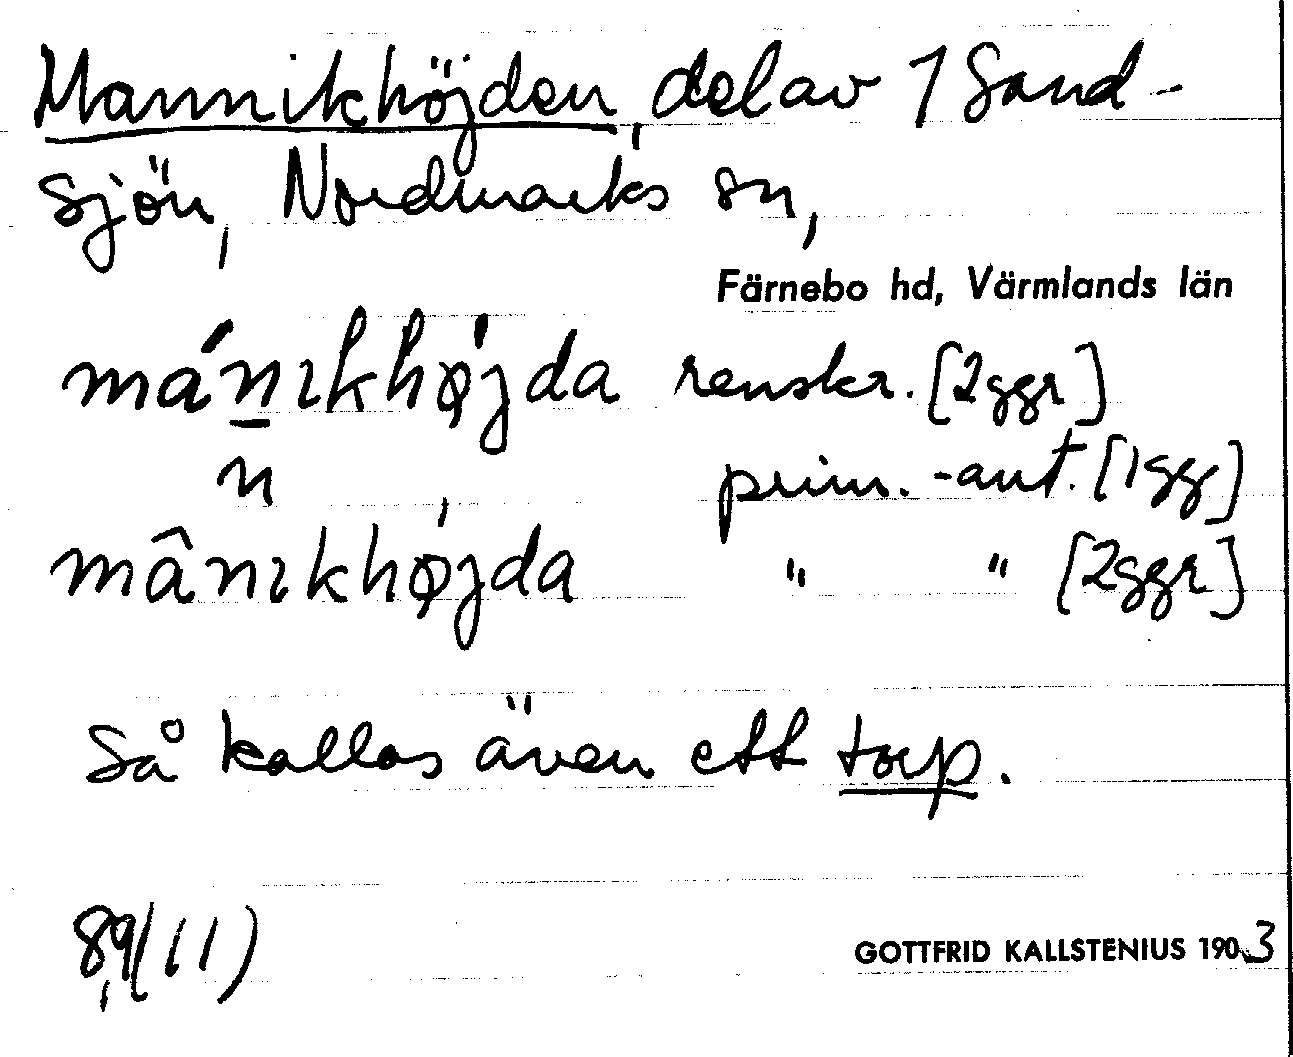 Mannikhöjden, del av 1 Sand-
sjön, Nordmarks sn,
Färnebo hd, Värmlands län
mánıkhøjda renskr. [2ggr]
n prim.-ant. [1gg]
mânıkhøjda " " [2ggr]
Så kallas även ett torp.
89(11)
GOTTFRID KALLSTENIUS 1903